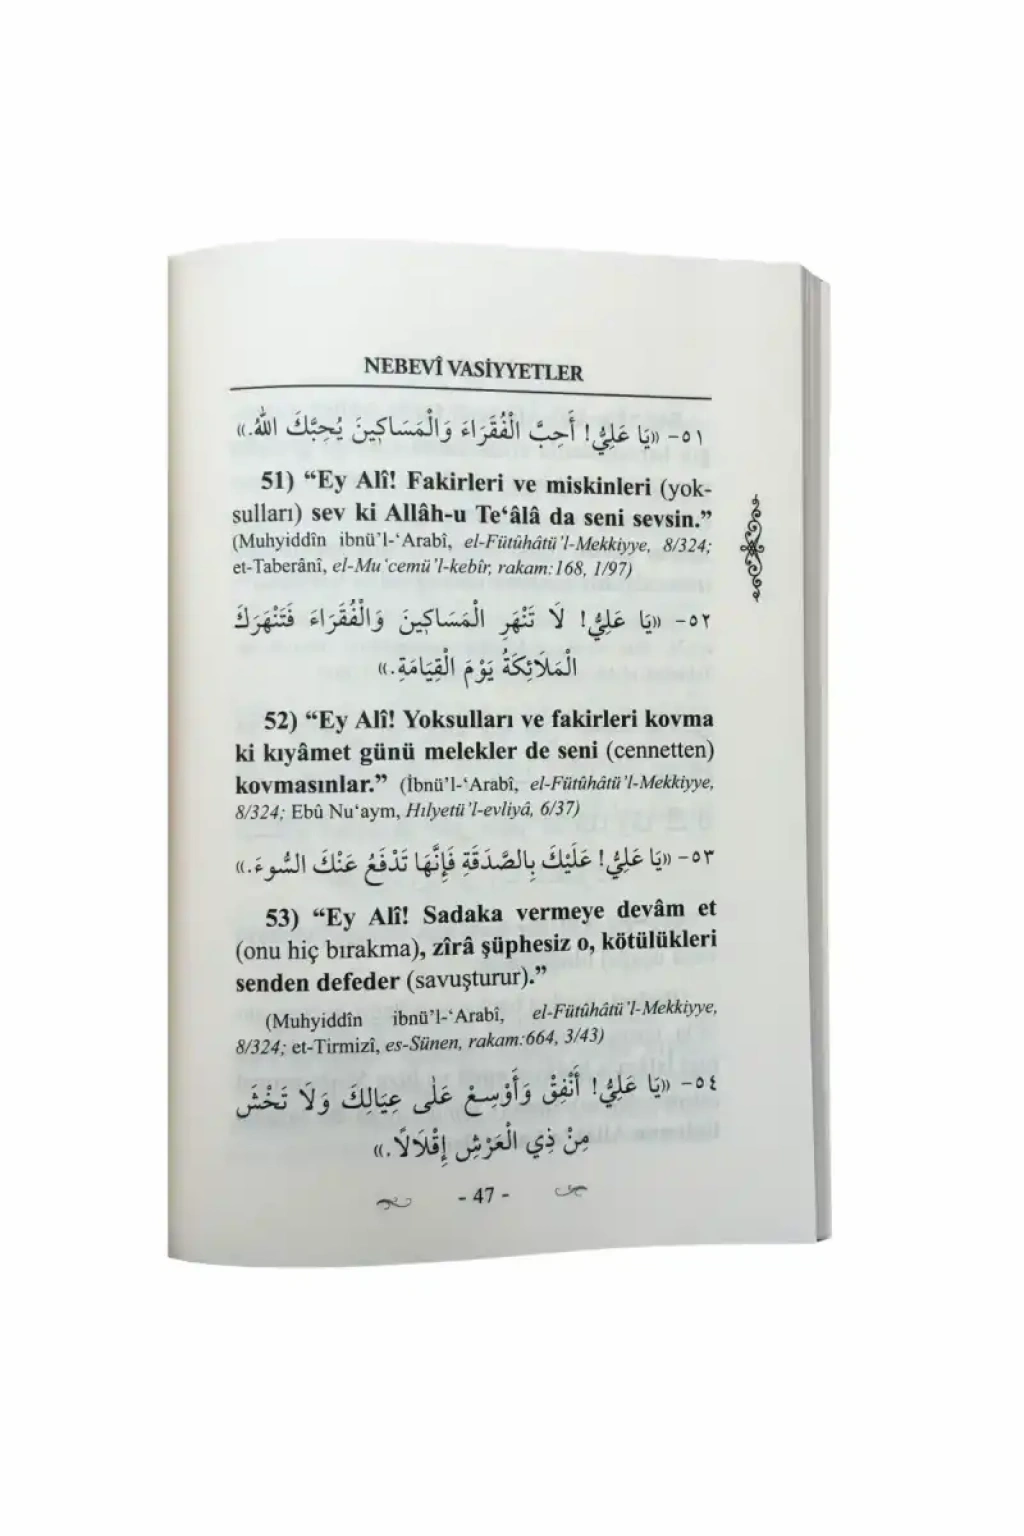 NEBEVÎ VASİYYETLER
٥١- «يَا عَلِيُّ! أَحِبَّ الْفُقَرَاءَ وَالْمَسَاكِينَ يُحِبَّكَ اللّٰهُ.»
51) “Ey Alî! Fakirleri ve miskinleri (yok-
sulları) sev ki Allâh-u Te‘âlâ da seni sevsin.”
(Muhyiddîn ibnü’l-‘Arabî, el-Fütûhâtü’l-Mekkiyye, 8/324;
et-Taberânî, el-Mu‘cemü’l-kebîr, rakam:168, 1/97)
٥٢- «يَا عَلِيُّ! لَا تَنْهَرِ الْمَسَاكِينَ وَالْفُقَرَاءَ فَتَنْهَرَكَ
الْمَلَائِكَةُ يَوْمَ الْقِيَامَةِ.»
52) “Ey Alî! Yoksulları ve fakirleri kovma
ki kıyâmet günü melekler de seni (cennetten)
kovmasınlar.” (İbnü’l-‘Arabî, el-Fütûhâtü’l-Mekkiyye,
8/324; Ebû Nu‘aym, Hılyetü’l-evliyâ, 6/37)
٥٣- «يَا عَلِيُّ! عَلَيْكَ بِالصَّدَقَةِ فَإِنَّهَا تَدْفَعُ عَنْكَ السُّوءَ.»
53) “Ey Alî! Sadaka vermeye devâm et
(onu hiç bırakma), zîrâ şüphesiz o, kötülükleri
senden defeder (savuşturur).”
(Muhyiddîn ibnü’l-‘Arabî, el-Fütûhâtü’l-Mekkiyye,
8/324; et-Tirmizî, es-Sünen, rakam:664, 3/43)
٥٤- «يَا عَلِيُّ! أَنْفِقْ وَأَوْسِعْ عَلَى عِيَالِكَ وَلَا تَخْشَ
مِنْ ذِي الْعَرْشِ إِقْلَالًا.»
- 47 -